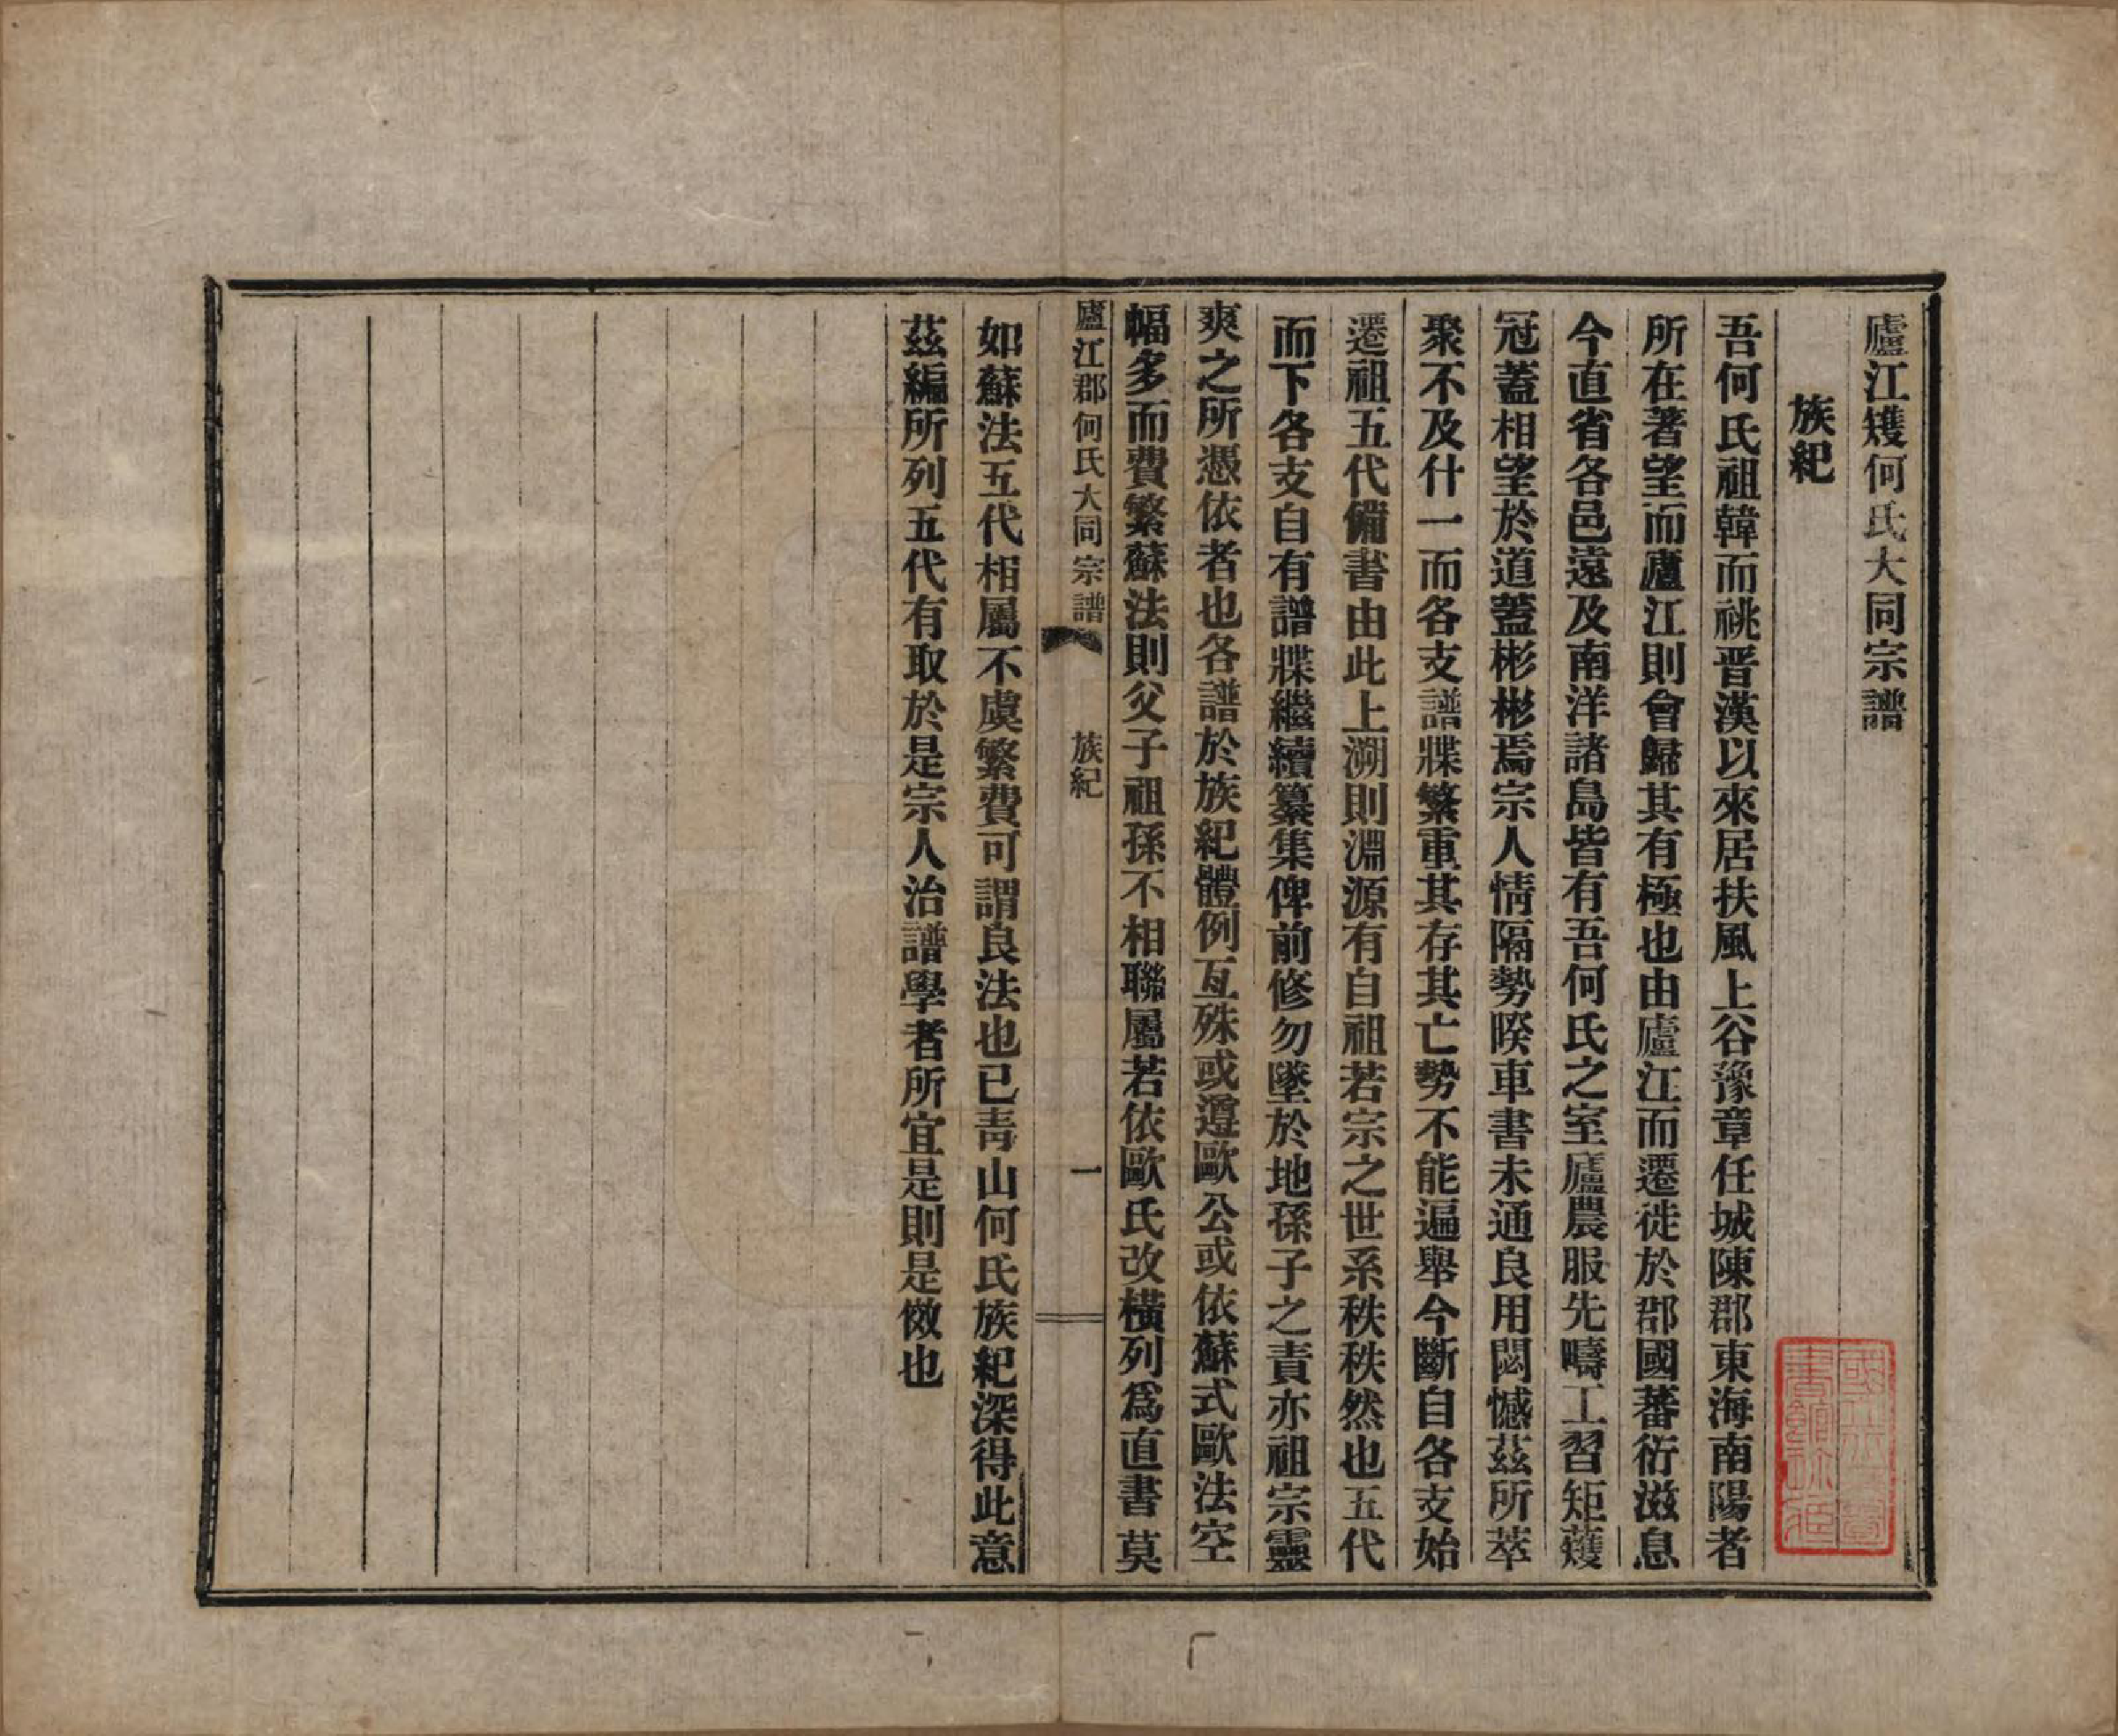 廬江䂄何氏大同宗譜
族紀
吾何氏祖韓而祧晋漢以來居扶風上谷豫章任城陳郡東海南陽者
所在著望而廬江則會歸其有極也由廬江而遷徙於郡國蕃衍滋息
今直省各邑遠及南洋諸島皆有吾何氏之室廬農服先疇工習矩矱
冠蓋相望於道蓋彬彬焉宗人情隔勢暌車書未通良用閔憾茲所萃
聚不及什一而各支譜牒繁重其存其亡勢不能遍舉今斷自各支始
遷祖五代備書由此上溯則淵源有自祖若宗之世系秩秩然也五代
而下各支自有譜牒繼續纂集俾前修勿墜於地孫子之責亦祖宗靈
爽之所憑依者也各譜於族紀體例互殊或遵歐公或依蘇式歐法空
幅多而費繁蘇法則父子祖孫不相聯屬若依歐氏改橫列爲直書莫
廬江郡何氏大同宗譜
族紀
一
如蘇法五代相屬不虞繁費可謂良法也已靑山何氏族紀深得此意
茲編所列五代有取於是宗人治譜學者所宜是則是傚也